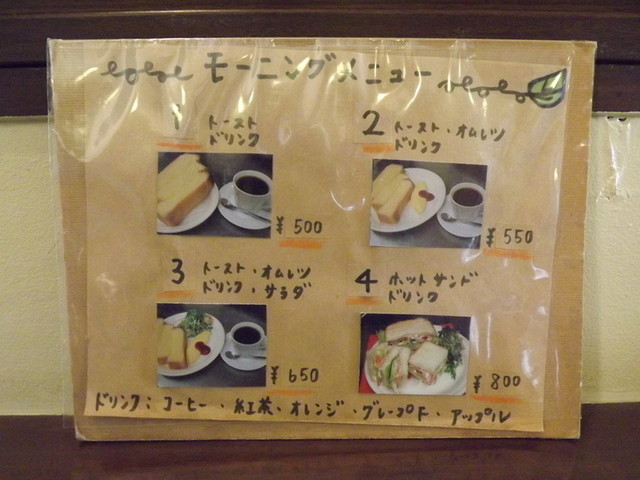 モーニングメニュー
1 トースト
ドリンク
¥500
2 トースト・オムレツ
ドリンク
¥550
3 トースト・オムレツ
ドリンク・サラダ
¥650
4 ホットサンド
ドリンク
¥800
ドリンク: コーヒー・紅茶・オレンジ・グレープF・アップル